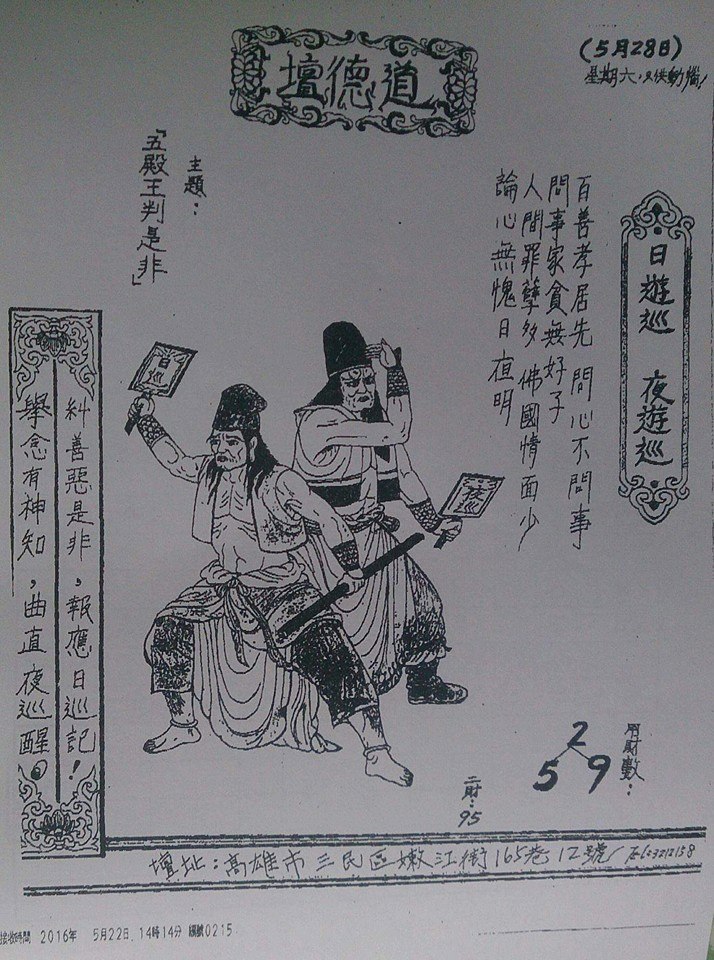 (5月28日)
星期六，只供動腦！
道德壇
日遊巡 夜遊巡
百善孝居先 問心不問事
問事家貧無好子
人間罪孽多 佛國情面少
論心無愧日夜明
主題：
「五殿王判是非」
日巡
夜巡
糾善惡是非，報應日巡記！
舉念有神知，曲直夜巡醒。
用財數：
2
5 9
二財：95
壇址：高雄市三民區嫩江街165巷12號/Tel:3212158
接收時間 2016年 5月22日.14時14分 編號0215